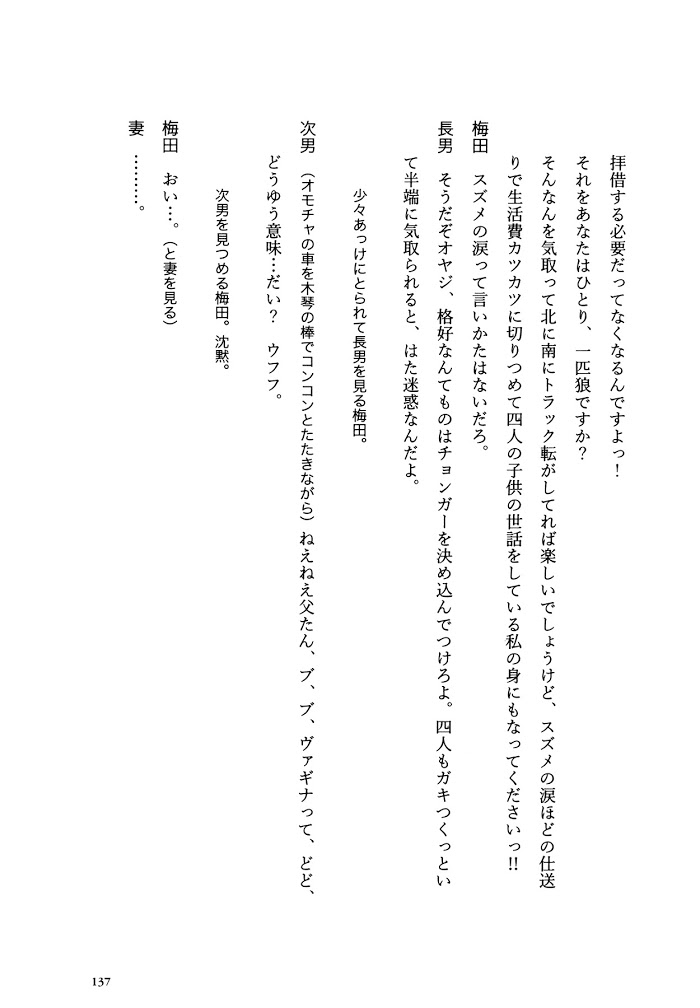 拝借する必要だってなくなるんですよっ！
それをあなたはひとり、一匹狼ですか？
そんなんを気取って北に南にトラック転がしてれば楽しいでしょうけど、スズメの涙ほどの仕送
りで生活費カツカツに切りつめて四人の子供の世話をしている私の身にもなってくださいっ!!
梅田　スズメの涙って言いかたはないだろ。
長男　そうだぞオヤジ、格好なんてものはチョンガーを決め込んでつけろよ。四人もガキつくっとい
て半端に気取られると、はた迷惑なんだよ。
少々あっけにとられて長男を見る梅田。
次男　（オモチャの車を木琴の棒でコンコンとたたきながら）ねえねえ父たん、ブ、ブ、ヴァギナって、どど、
どうゆう意味…だい？　ウフフ。
次男を見つめる梅田。沈黙。
梅田　おい…。（と妻を見る）
妻　………。
137